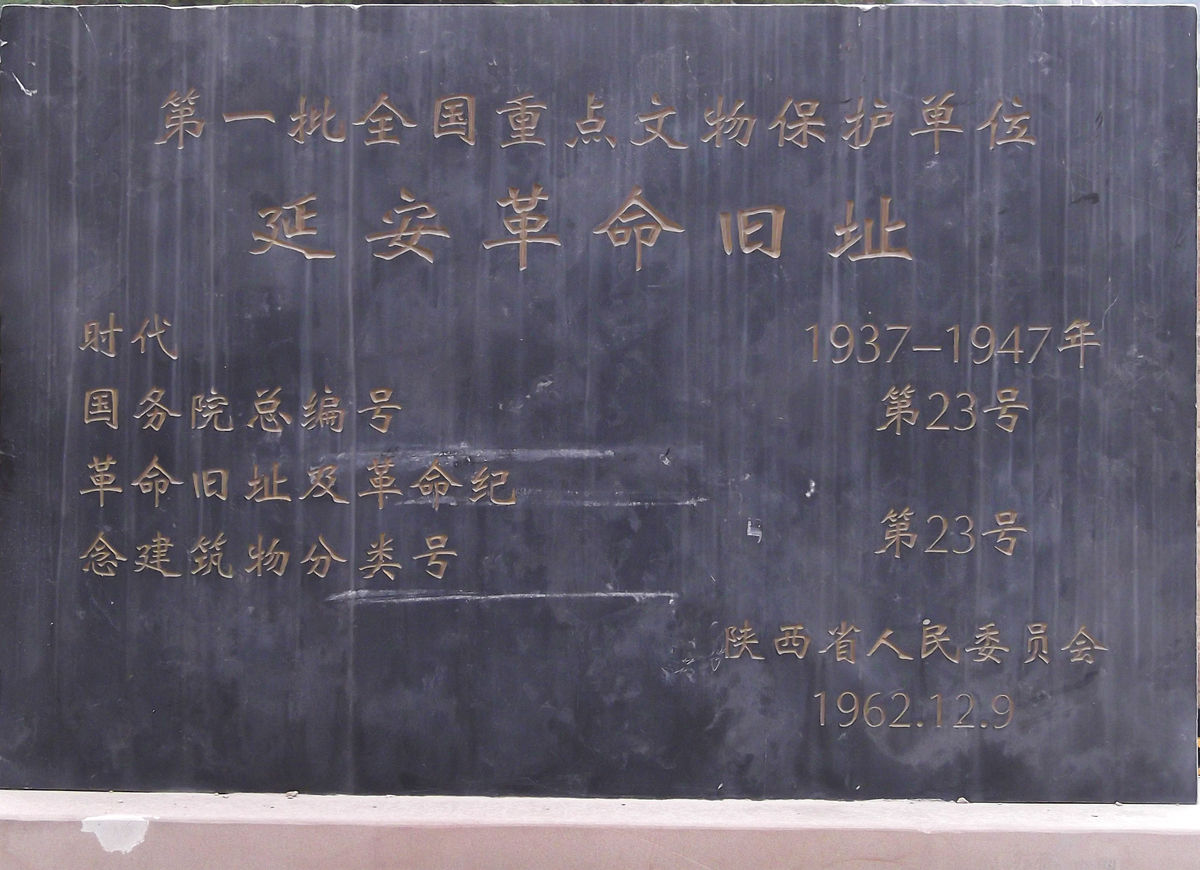 第一批全国重点文物保护单位
延安革命旧址
时代 1937-1947年
国务院总编号 第23号
革命旧址及革命纪
念建筑物分类号 第23号
陕西省人民委员会
1962.12.9